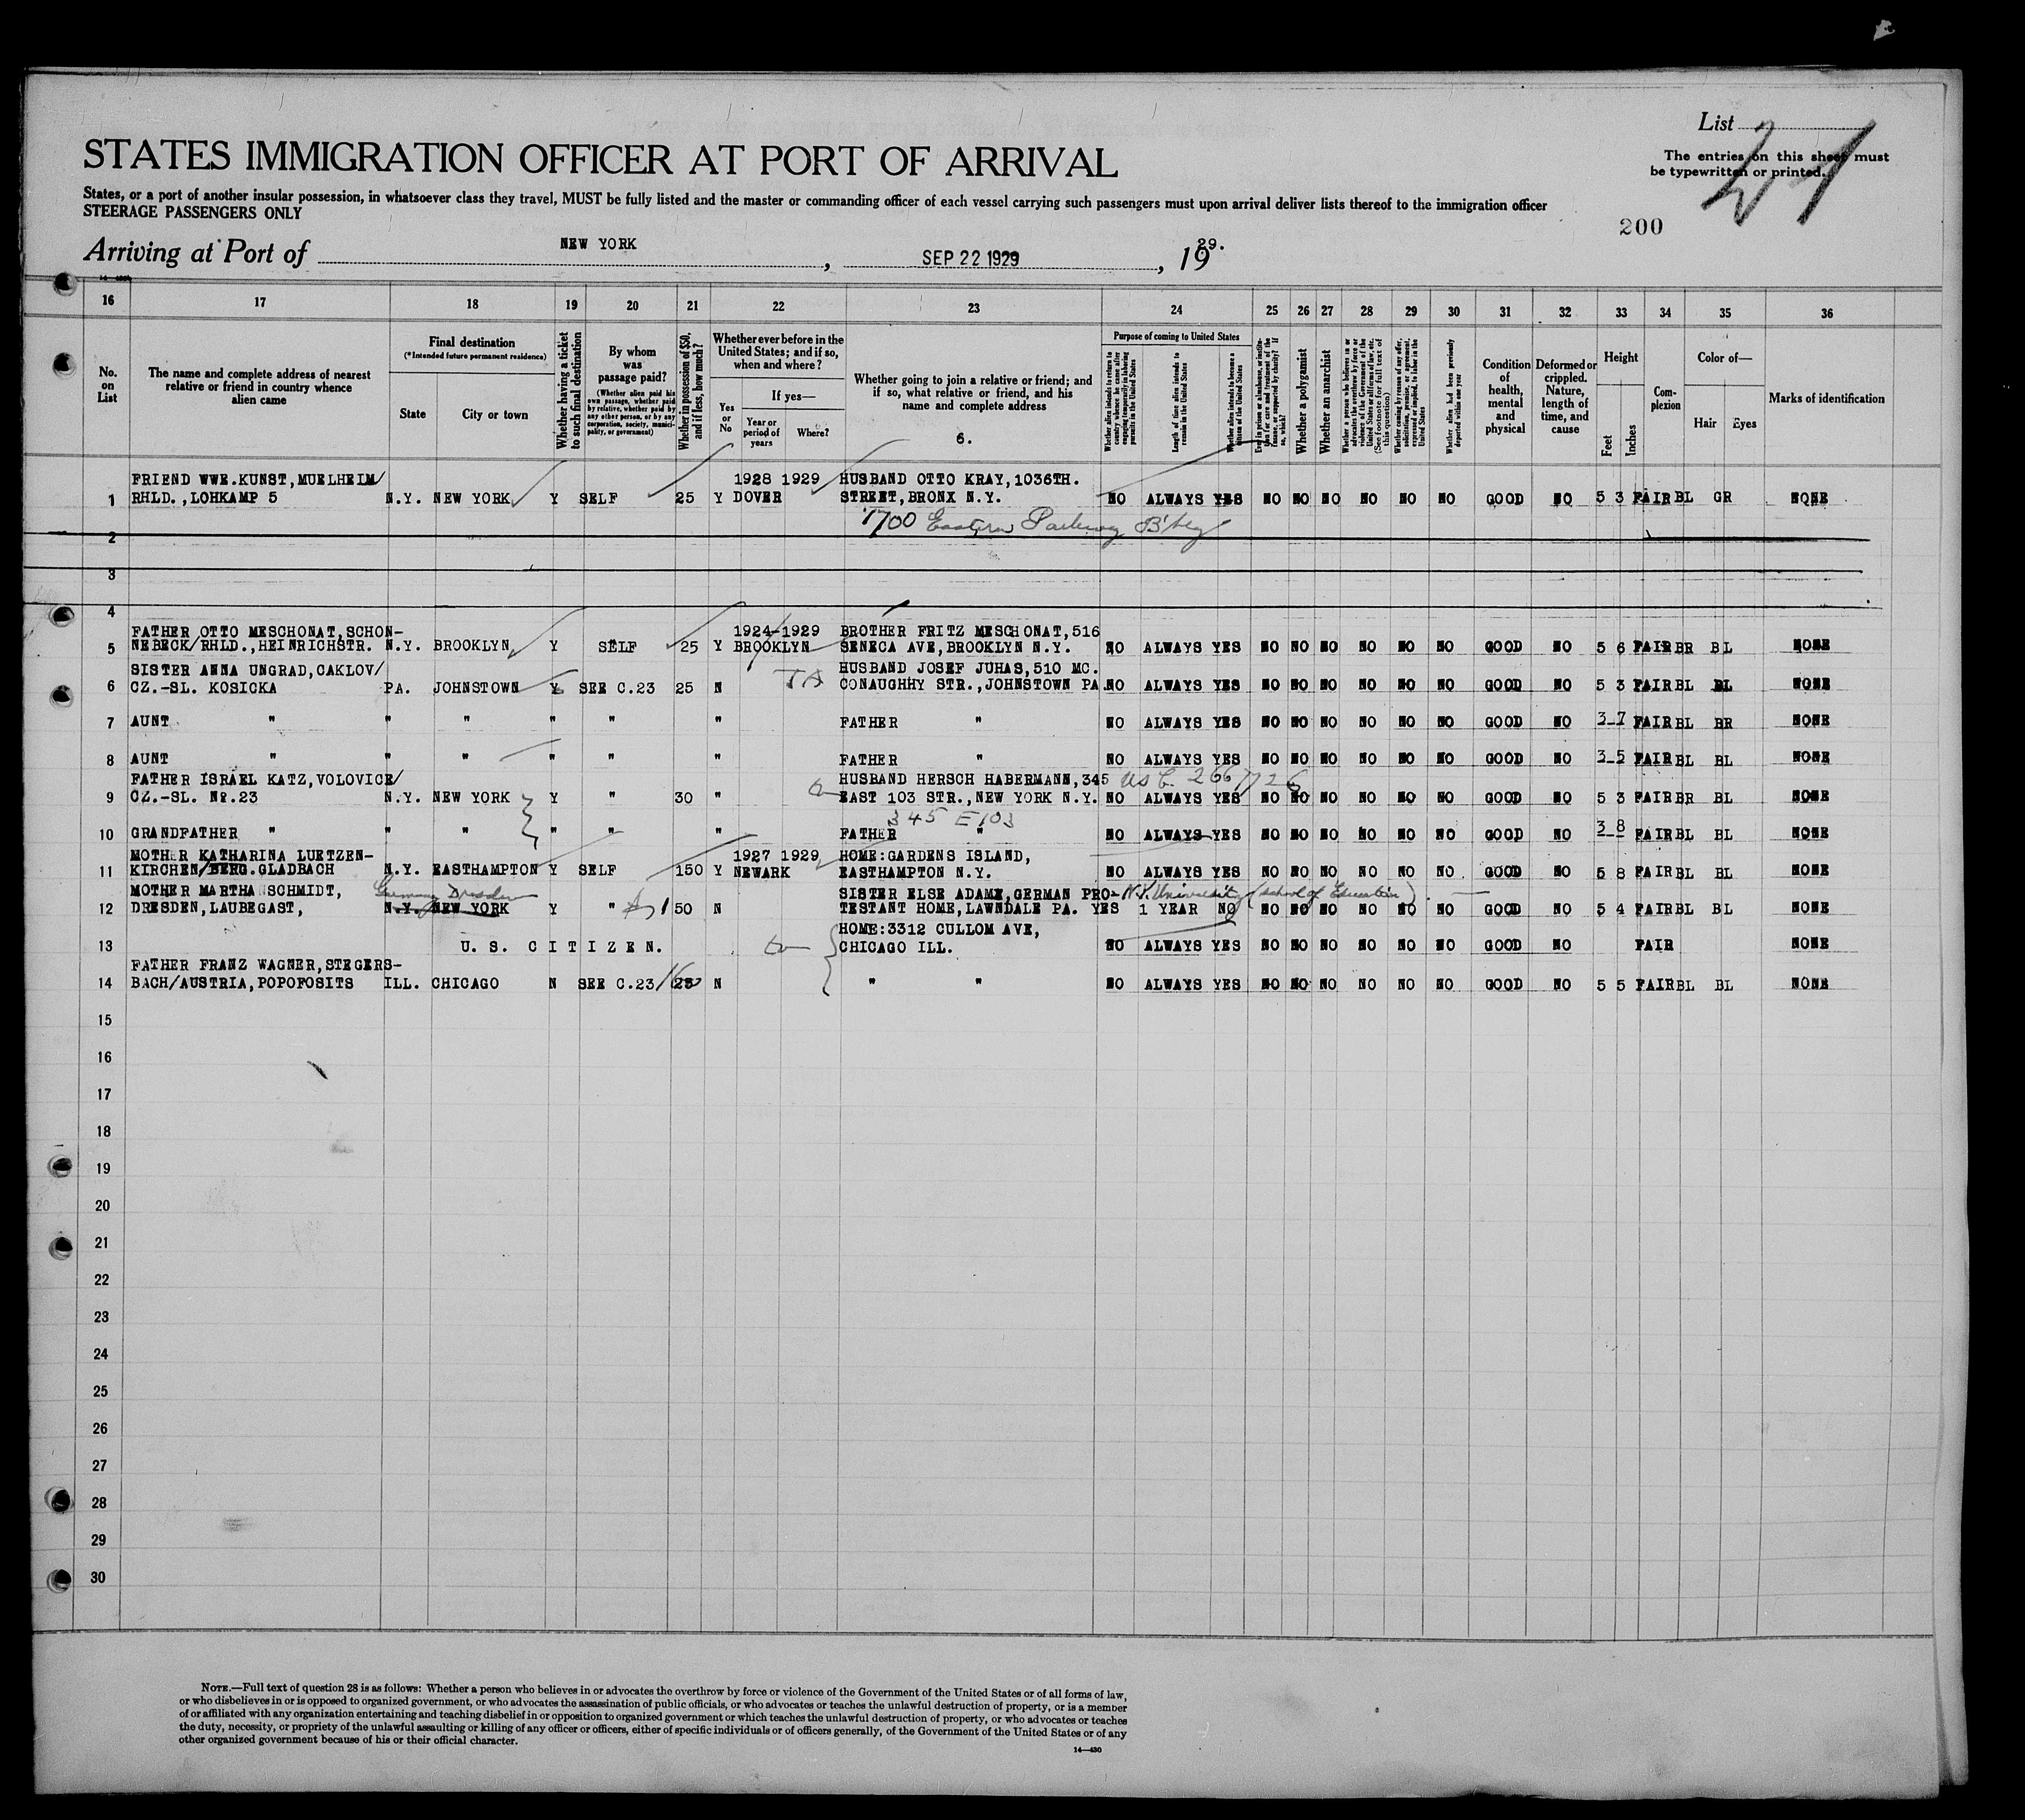 List
21
The entries on this sheet must
be typewritten or printed.
STATES IMMIGRATION OFFICER AT PORT OF ARRIVAL
States, or a port of another insular possession, in whatsoever class they travel, MUST be fully listed and the master or commanding officer of each vessel carrying such passengers must upon arrival deliver lists thereof to the immigration officer
STEERAGE PASSENGERS ONLY
200
Arriving at Port of NEW YORK, SEP 22 1929, 1929.
16 17 18 19 20 21 22 23 24 25 26 27 28 29 30 31 32 33 34 35 36
No. on List
The name and complete address of nearest relative or friend in country whence alien came
Final destination
(*Intended future permanent residence)
State
City or town
Whether having a ticket to such final destination
By whom was passage paid?
(Whether alien paid his own passage, whether paid by relative, whether paid by any other person, or by any corporation, society, municipality, or government)
Whether in possession of $50, and if less, how much?
Whether ever before in the United States; and if so, when and where?
Yes or No
If yes—
Year or period of years
Where?
Whether going to join a relative or friend; and if so, what relative or friend, and his name and complete address
6.
Purpose of coming to United States
Whether alien intends to return to country whence he came after engaging temporarily in laboring pursuits in the United States
Length of time alien intends to remain in the United States
Whether alien intends to become a citizen of the United States
Whether a polygamist
Whether an anarchist
Whether alien had been previously deported within one year
Condition of health, mental and physical
Deformed or crippled. Nature, length of time, and cause
Height
Feet
Inches
Complexion
Color of—
Hair
Eyes
Marks of identification
FRIEND WWE.KUNST,MUELHEIM/ 1928 1929 HUSBAND OTTO KRAY,1036TH.
1 RHLD.,LOHKAMP 5 N.Y. NEW YORK Y SELF 25 Y DOVER STREET,BRONX N.Y. NO ALWAYS YES NO NO NO NO NO NO GOOD NO 5 3 FAIR BL GR NONE
1700 Eastern Parkway B'kly
2
3
4
FATHER OTTO MESCHONAT,SCHON- 1924-1929 BROTHER FRITZ MESCHONAT,516
5 NEBECK/RHLD.,HEINRICHSTR. N.Y. BROOKLYN Y SELF 25 Y BROOKLYN SENECA AVE,BROOKLYN N.Y. NO ALWAYS YES NO NO NO NO NO NO GOOD NO 5 6 FAIR BR BL NONE
SISTER ANNA UNGRAD,CAKLOV/ HUSBAND JOSEF JUHAS,510 MC.
6 CZ.-SL. KOSICKA PA. JOHNSTOWN Y SEE C.23 25 N CONAUGHHY STR.,JOHNSTOWN PA. NO ALWAYS YES NO NO NO NO NO NO GOOD NO 5 3 FAIR BL BL NONE
7 AUNT " " " " " " FATHER " NO ALWAYS YES NO NO NO NO NO NO GOOD NO 3-7 FAIR BL BR NONE
8 AUNT " " " " " " FATHER " NO ALWAYS YES NO NO NO NO NO NO GOOD NO 3-5 FAIR BL BL NONE
FATHER ISRAEL KATZ,VOLOVICE/ HUSBAND HERSCH HABERMANN,345
9 CZ.-SL. Nr.23 N.Y. NEW YORK Y " 30 " EAST 103 STR.,NEW YORK N.Y. NO ALWAYS YES NO NO NO NO NO NO GOOD NO 5 3 FAIR BR BL NONE
345 E 103
10 GRANDFATHER " " " " " " FATHER " NO ALWAYS YES NO NO NO NO NO NO GOOD NO 3-8 FAIR BL BL NONE
MOTHER KATHARINA LUETZEN- 1927 1929 HOME:GARDENS ISLAND,
11 KIRCHEN/BERG.GLADBACH N.Y. EASTHAMPTON Y SELF 150 Y NEWARK EASTHAMPTON N.Y. NO ALWAYS YES NO NO NO NO NO NO GOOD NO 5 8 FAIR BL BL NONE
MOTHER MARTHA SCHMIDT, Germany Dresden SISTER ELSE ADAME,GERMAN PRO- N.Y. University (School of Education)
12 DRESDEN,LAUBEGAST, N.Y. NEW YORK Y " 150 N TESTANT HOME,LAWNDALE PA. YES 1 YEAR NO NO NO NO NO NO NO GOOD NO 5 4 FAIR BL BL NONE
HOME:3312 CULLOM AVE,
13 U. S. C I T I Z E N. CHICAGO ILL. NO ALWAYS YES NO NO NO NO NO NO GOOD NO FAIR NONE
FATHER FRANZ WAGNER,STEGERS-
14 BACH/AUSTRIA,POPOFOSITS ILL. CHICAGO N SEE C.23 25 N " " NO ALWAYS YES NO NO NO NO NO NO GOOD NO 5 5 FAIR BL BL NONE
15
16
17
18
19
20
21
22
23
24
25
26
27
28
29
30
NOTE.—Full text of question 28 is as follows: Whether a person who believes in or advocates the overthrow by force or violence of the Government of the United States or of all forms of law,
or who disbelieves in or is opposed to organized government, or who advocates the assassination of public officials, or who advocates or teaches the unlawful destruction of property, or is a member
of or affiliated with any organization entertaining and teaching disbelief in or opposition to organized government or which teaches the unlawful destruction of property, or who advocates or teaches
the duty, necessity, or propriety of the unlawful assaulting or killing of any officer or officers, either of specific individuals or of officers generally, of the Government of the United States or of any
other organized government because of his or their official character.
14—430